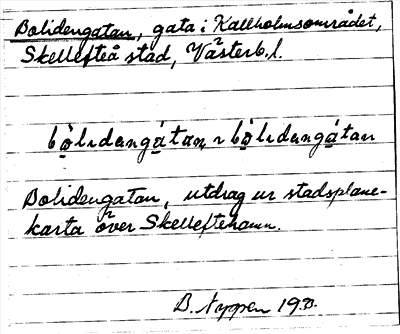 Bolidengatan, gata i Kallholmsområdet,
Skellefteå stad, Västerb. l.
bòlɩdəngàtan ~ bòlɩdəngátan
Bolidengatan, utdrag ur stadsplane-
karta över Skelleftehamn.
B. Nyppen 19